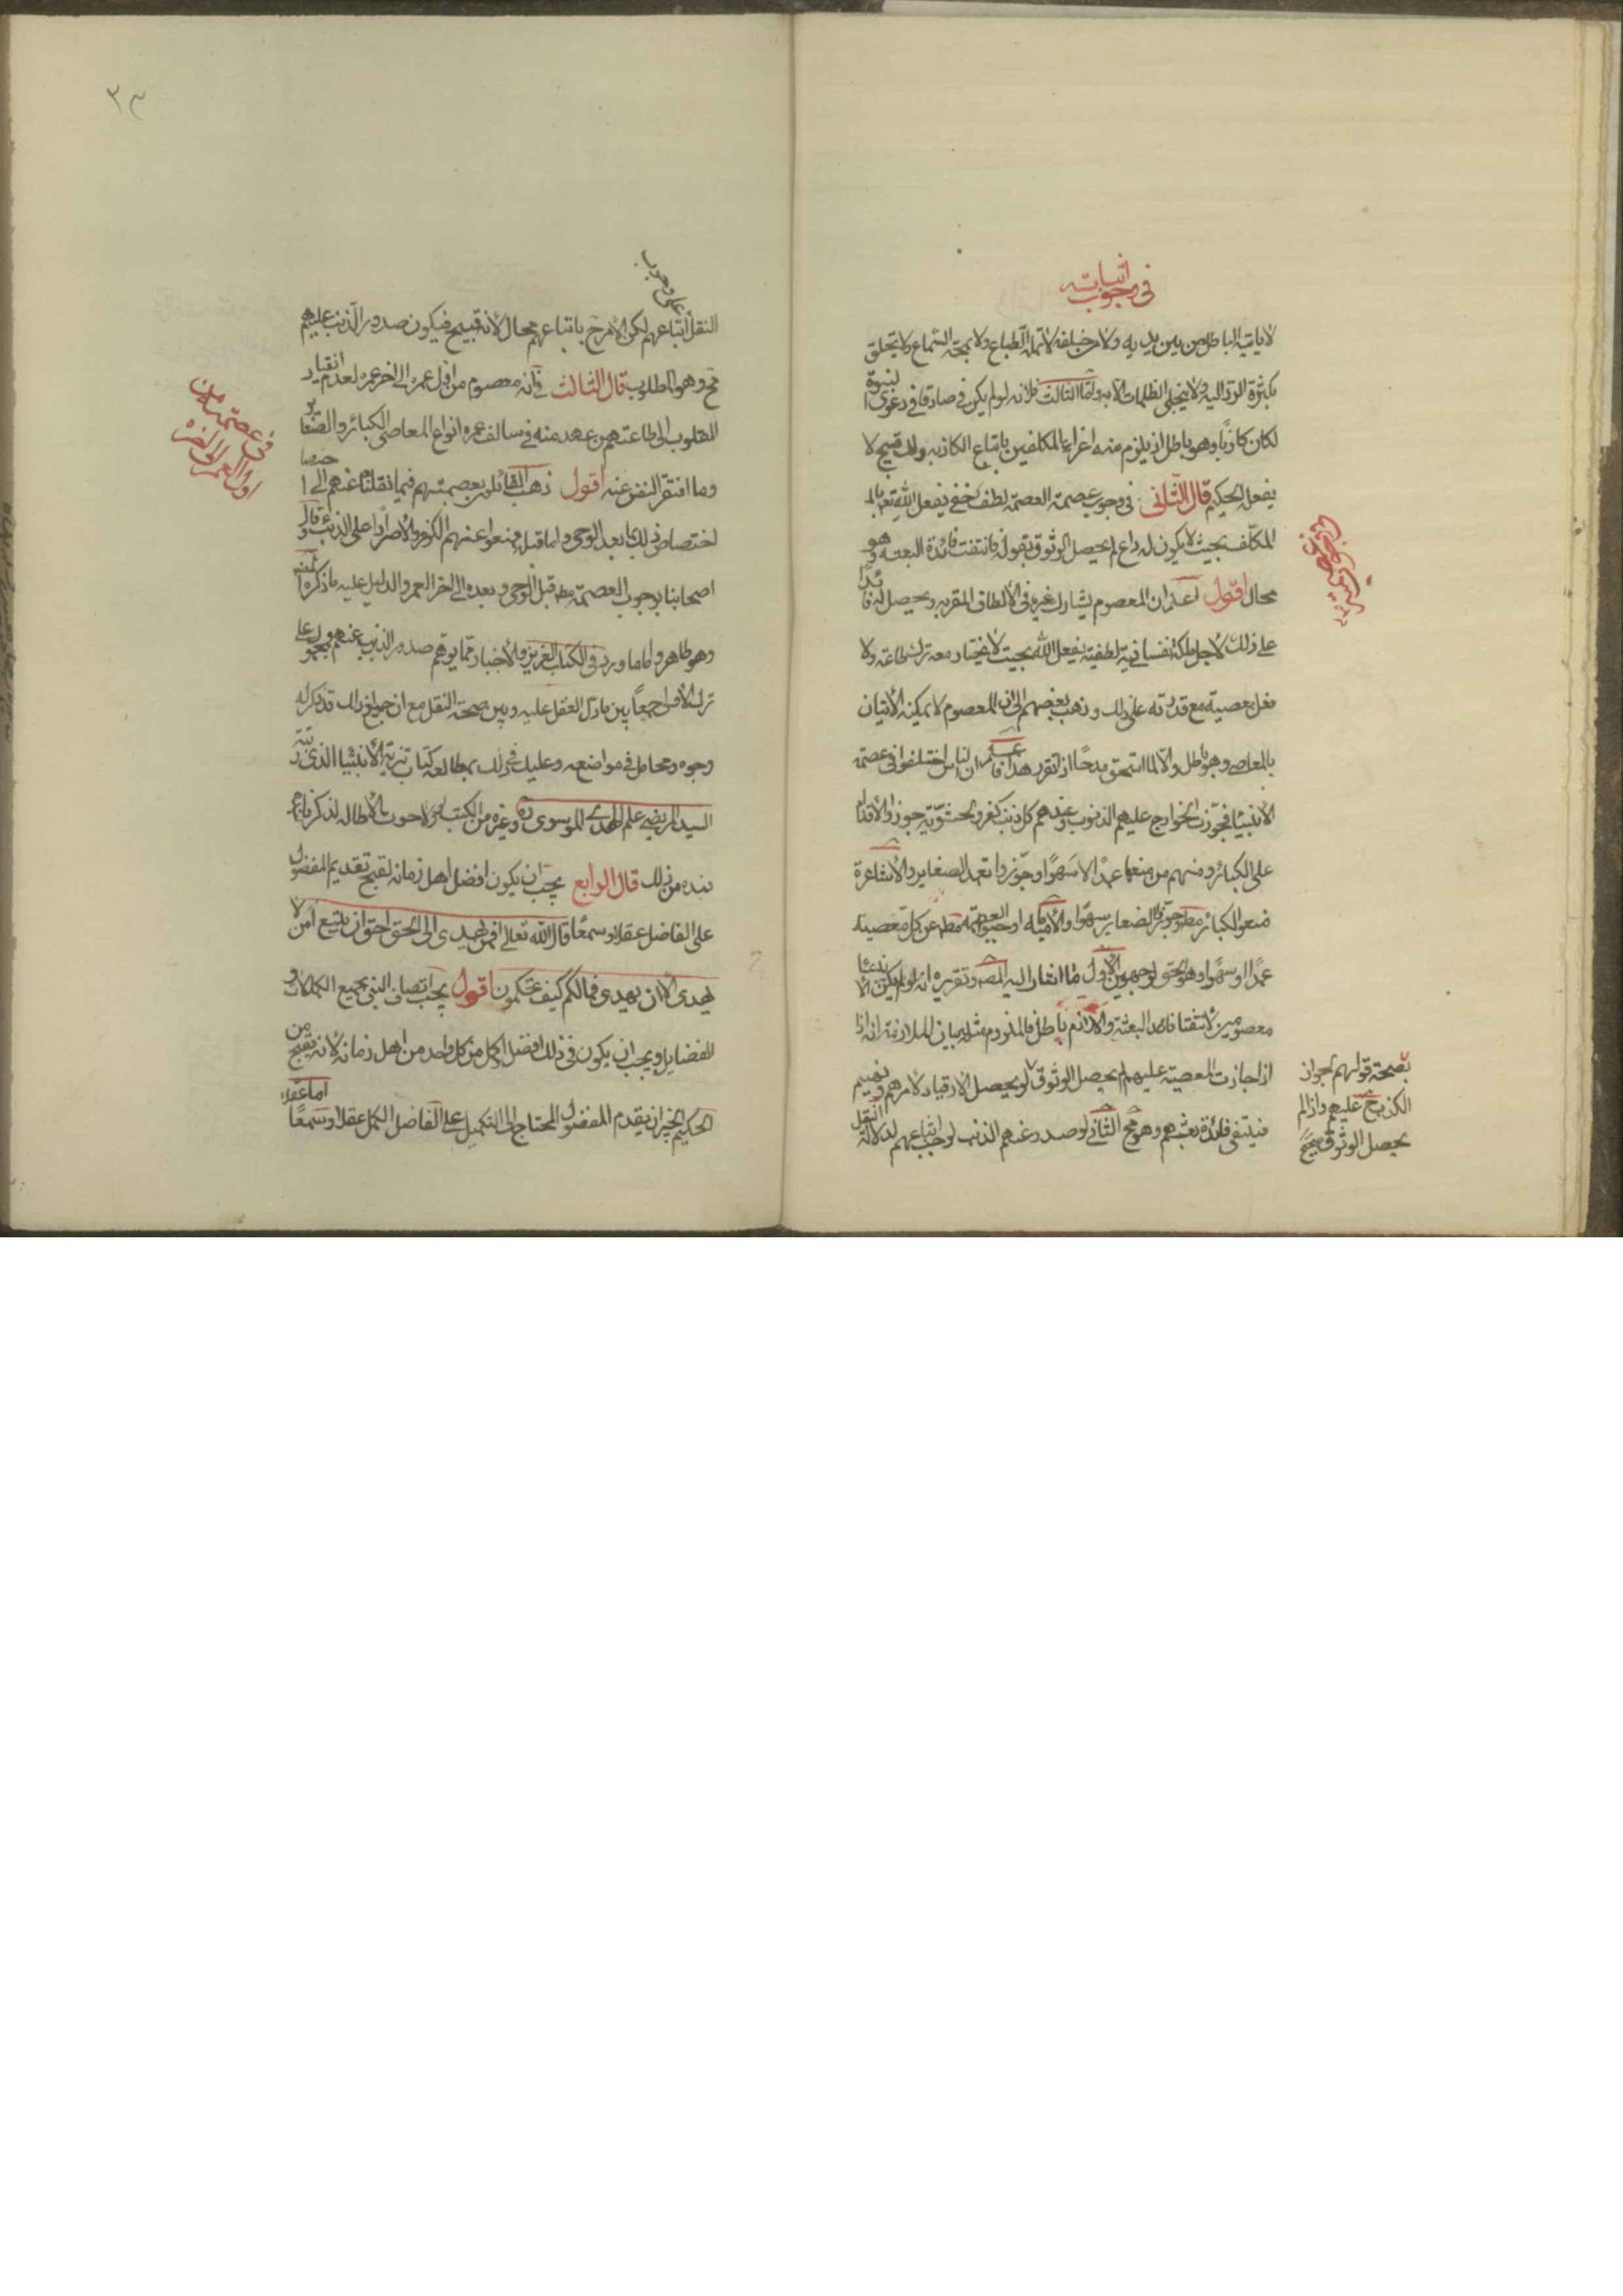 في وجوب اثباته
لا ياتيه الباطل من بين يديه ولا من خلفه لا تمله الطباع ولا يمجه السماع ولا يخلق
بكثرة الرد اليه ولا ينجلي الظلمات الا به واما الثالث فلانه لو لم يكن صادقا في دعوى النبوة
لكان كاذبا وهو باطل اذ يلزم منه اغراء المكلفين باتباع الكاذب وذلك قبيح لا
يفعله الحكيم قال الثاني في وجوب عصمته العصمة لطف خفي يفعل الله تعالى
المكلف بحيث لا يكون له داع لم يحصل الوثوق بقوله فانتفت فائدة البعثة وهو
محال اقول اعلم ان المعصوم يشارك غيره في الالطاف المقربة ويحصل له زائدا
على ذلك لاجل ملكة نفسانية لطفية يفعل الله بحيث لا يختار معه ترك طاعة ولا
فعل معصية مع قدرته على ذلك وذهب بعضهم الى ان المعصوم لا يمكنه الاتيان
بالمعاصي وهو باطل والا لما استحق مدحا اذا تقرر هذا فاعلم ان الناس اختلفوا في عصمة
الانبيا فجوزت الخوارج عليهم الذنوب وعندهم كل ذنب كفر والحشوية جوزوا الاقدام
على الكبائر ومنهم من منعها عمدا لا سهوا وجوزوا تعمد الصغاير والاشاعرة
منعوا الكبائر مط وجوزوا الصغاير سهوا والامامية اوجبوا العصمة مط عن كل معصية
عمدا او سهوا وهو الحق لوجهين الاول ما اشار اليه المصـ وتقريره انه لو لم يكن الانبيا
معصومين لانتفت فائدة البعثة واللازم باطل فالملزوم مثله بيان الملازمة انه اذا
اذا جازت المعصية عليهم لم يحصل الوثوق
بصحة قولهم لجواز
الكذب ح عليهم واذا لم
يحصل الوثوق
لم يحصل الانقياد لامرهم ونهيهم
فينتفي فائدة بعثهم وهو مح الثاني لو صدر عنهم الذنب لوجب اتباعهم لدلالة النقل
٢٣
على وجوب
النقل اتباعهم لكن الامر ح باتباعهم محال لانه قبيح فيكون صدور الذنب عليهم
مح وهو المطلوب قال الثالث في انه معصوم من اول عمره الى اخر عمره لعدم انقياد
القلوب الى طاعة من عهد منه في سالف عمره انواع المعاصي الكبائر والصغاير
في عصمته من
اول العمر الى اخره
وما انتفر النفس عنه اقول ذهب القائلون بعصمتهم فيما نقلنا عنهم الى
اختصاص ذلك بما بعد الوحي واما قبله فمنعوا عنهم الكفر والاصرار على الذنب وقال
اصحابنا بوجوب العصمة مط قبل الوحي وبعده الى اخر العمر والدليل عليه ما ذكره المصنف
وهو ظاهر واما ما ورد في الكتاب العزيز والاخبار مما يوهم صدور الذنب عنهم فمحمول على
ترك الاولى جمعا بين ما دل العقل عليه وبين صحة النقل مع ان جميع ذلك قد ذكر له
وجوه ومحامل في مواضعه وعليك في ذلك بمطالعة كتاب تنزيه الانبيا الذي رتبه
السيد المرتضى علم الهدى الموسوي ره وغيره من الكتب ولولا خوف الاطالة لذكرنا
نبذة من ذلك قال الرابع يجب ان يكون افضل اهل زمانه لقبح تقديم المفضول
على الفاضل عقلا وسمعا قال الله تعالى افمن يهدي الى الحق احق ان يتبع امن لا
يهدي الا ان يهدى فما لكم كيف تحكمون اقول يجب اتصاف النبي بجميع الكمالات و
الفضايل ويجب ان يكون في ذلك افضل واكمل من كل واحد من اهل زمانه لانه يقبح من
الحكيم الخبير ان يقدم المفضول المحتاج الى التكميل على الفاضل المكمل عقلا وسمعا اما عقلا